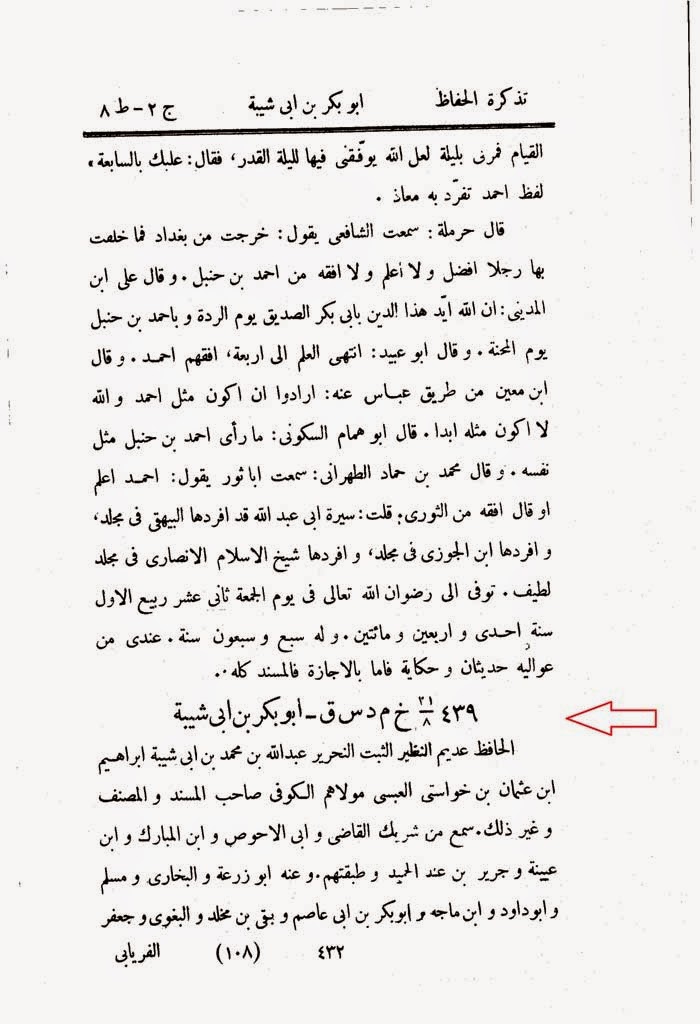 تذكرة الحفاظ ابو بكر بن ابى شيبة ج ٢ - ط ٨
القيام فمرنى بليلة لعل الله يوفّقنى فيها لليلة القدر، فقال: عليك بالسابعة،
لفظ احمد تفرّد به معاذ .
قال حرملة: سمعت الشافعى يقول: خرجت من بغداد فما خلفت
بها رجلا افضل و لا أعلم و لا افقه من احمد بن حنبل . و قال على ابن
المدينى: ان الله ايّد هذا الدين بابى بكر الصديق يوم الردة و باحمد بن حنبل
يوم المحنة . و قال ابو عبيد: انتهى العلم الى اربعة، افقهم احمد . و قال
ابن معين من طريق عباس عنه: ارادوا ان اكون مثل احمد و الله
لا اكون مثله ابدا . قال ابو همام السكونى: ما رأى احمد بن حنبل مثل
نفسه . و قال محمد بن حماد الطهرانى: سمعت ابا ثور يقول: احمد اعلم
او قال افقه من الثورى. قلت: سيرة ابى عبد الله قد افردها البيهقى فى مجلد،
و افردها ابن الجوزى فى مجلد، و افردها شيخ الاسلام الانصارى فى مجلد
لطيف . توفى الى رضوان الله تعالى فى يوم الجمعة ثانى عشر ربيع الاول
سنة احدى و اربعين و مائتين . و له سبع و سبعون سنة . عندى من
عواليه حديثان و حكاية فاما بالاجازة فالمسند كله .
٤٣٩ ٢١/٨ خ م د س ق - ابو بكر بن ابى شيبة
الحافظ عديم النظير الثبت النحرير عبدالله بن محمد بن ابى شيبة ابراهيم
ابن عثمان بن خواستى العبسى مولاهم الكوفى صاحب المسند و المصنف
و غير ذلك. سمع من شريك القاضى و ابى الاحوص و ابن المبارك و ابن
عيينة و جرير بن عند الحميد و طبقتهم. و عنه ابو زرعة و البخارى و مسلم
و ابوداود و ابن ماجه و ابوبكر بن ابى عاصم و بقى بن مخلد و البغوى و جعفر
٤٣٢ (١٠٨) الفريابى